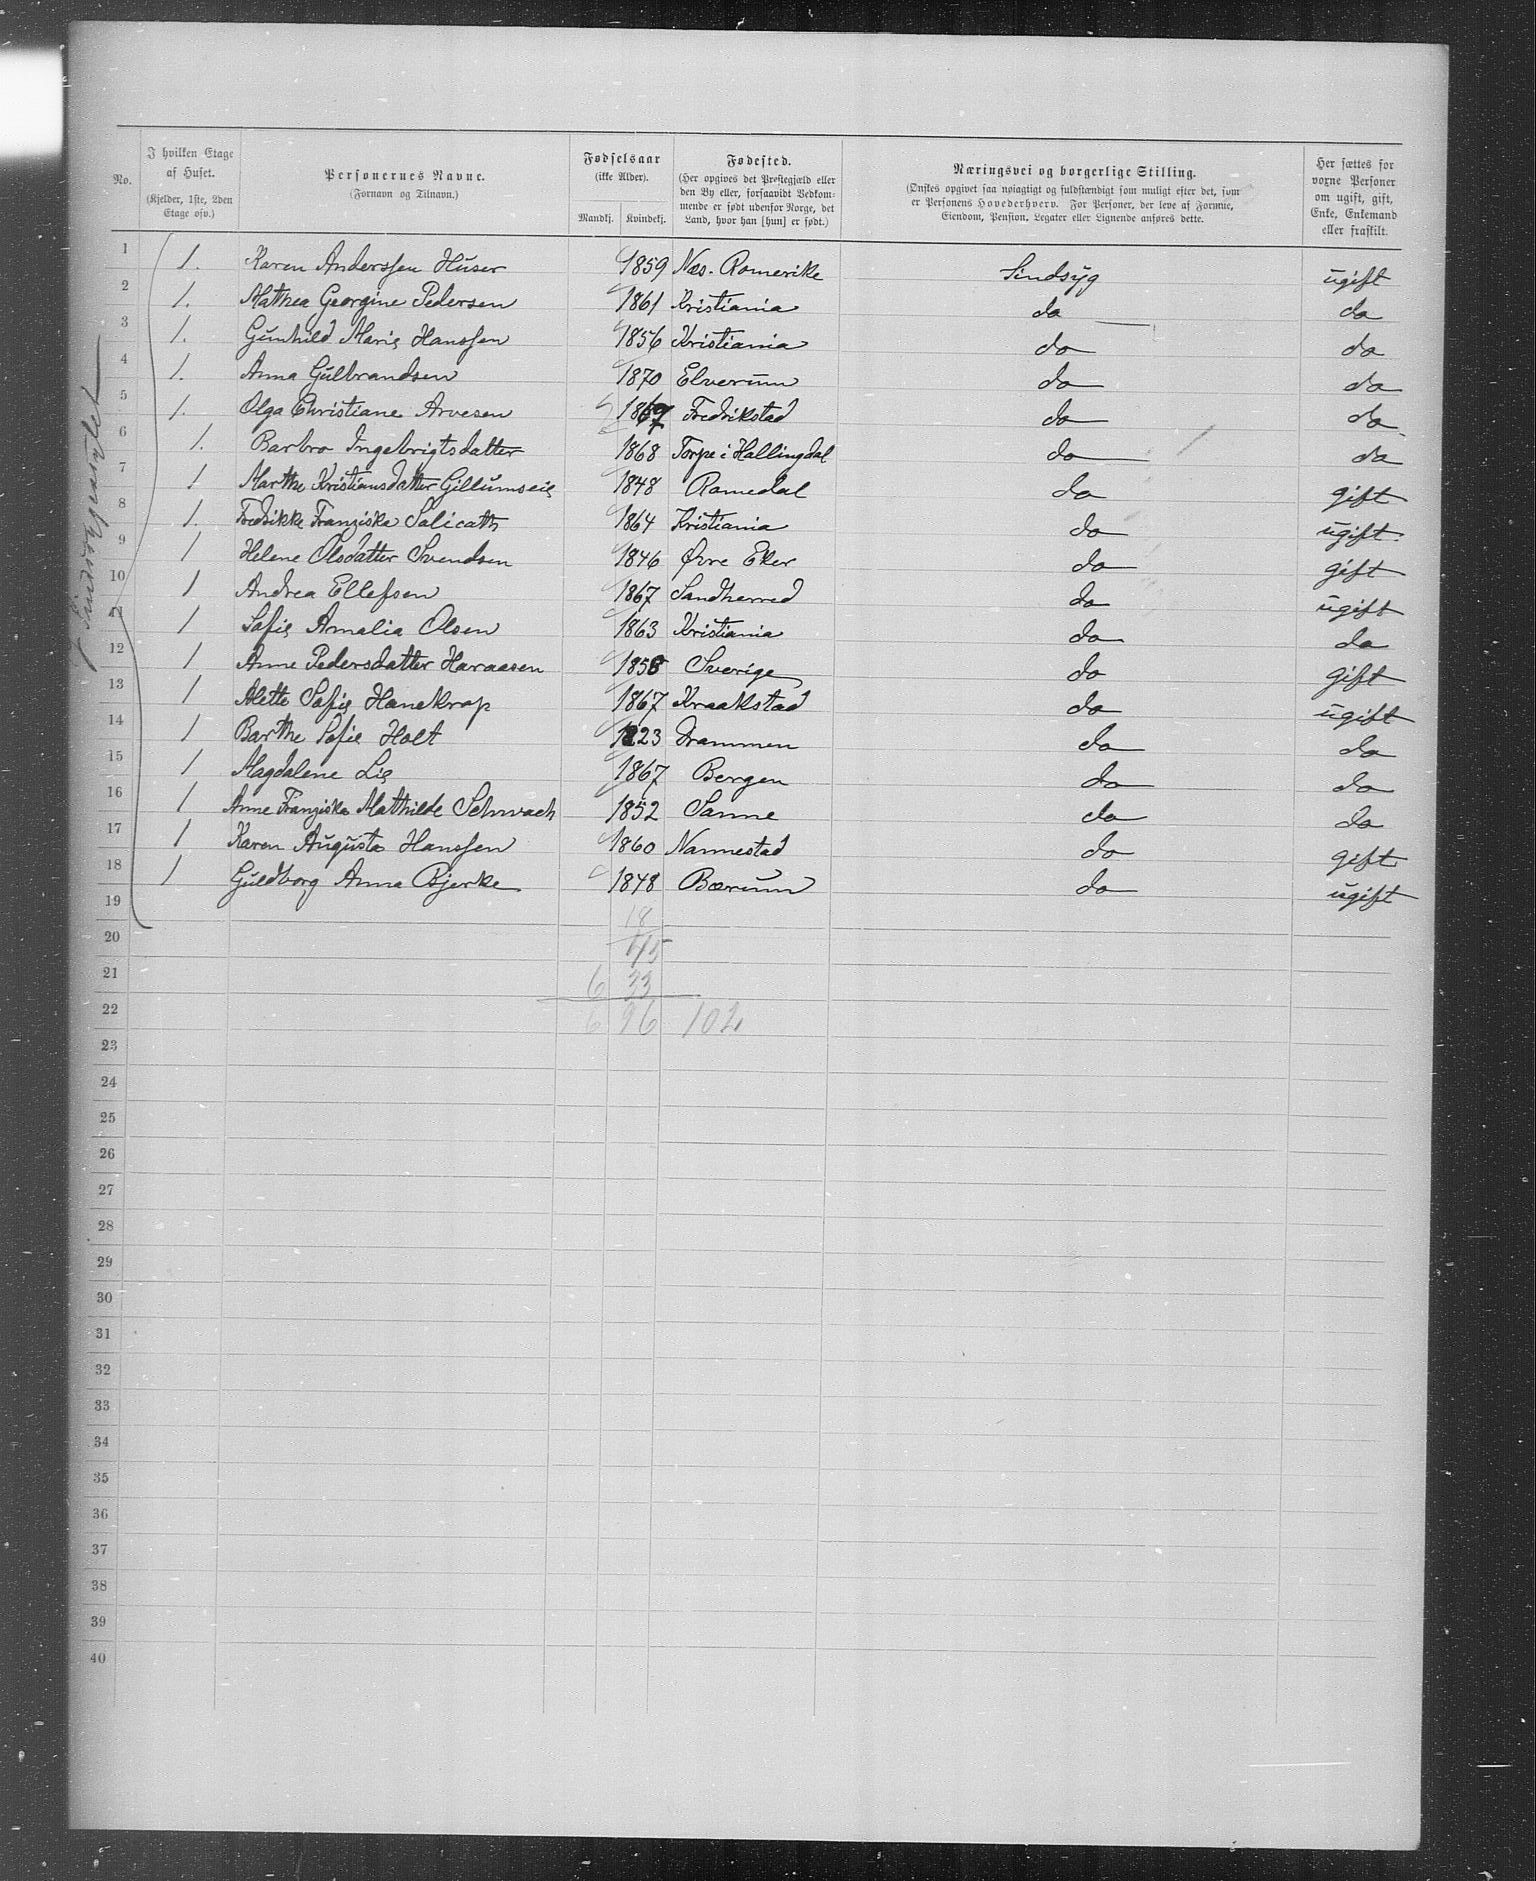 No.
I hvilken Etage af Huset.
(Kjelder, 1ste, 2den Etage osv.)
Personernes Navne.
(Fornavn og Tilnavn.)
Fødselsaar
(ikke Alder).
Mandkj. Kvindekj.
Fødested.
(Her opgives det Præstegjæld eller den By eller, forsaavidt Vedkommende er født udenfor Norge, det Land, hvor han [hun] er født.)
Næringsvei og borgerlige Stilling.
(Ønskes opgivet saa nøiagtigt og fuldstændigt som muligt efter det, som er Personens Hovederhverv. For Personer, der leve af Formue, Eiendom, Pension, Legater eller Lignende anføres dette.
Her sættes for voxne Personer om ugift, gift, Enke, Enkemand eller fraskilt.
1 1. Karen Anderssen Huser 1859 Næs. Romerike Sindsyg ugift
2 1. Mathea Georgine Pedersen 1861 Kristiania do do
3 1. Gunhild Marie Hanssen 1856 Kristiania do do
4 1. Anna Gulbrandsen 1870 Elverum do do
5 1. Olga Christiane Arvesen 1867 Fredrikstad do do
6 1. Barbro Ingebrigtsdatter 1868 Torpe i Hallingdal do do
7 1 Marthe Kristiansdatter Gillumseie 1848 Romedal do gift
8 1. Fredrikke Franziska Salicath 1864 Kristiania do ugift
9 1 Helene Olsdatter Svendsen 1846 Øvre Eker do gift
10 1 Andrea Ellefsen 1867 Sandherred do ugift
11 1 Sofie Amalia Olsen 1863 Kristiania do do
12 1 Anne Pedersdatter Haraasen 1858 Sverige do gift
13 1 Mette Sofie Hanekrop 1867 Kraakstad do ugift
14 1 Barthe Sofie Holt 1823 Drammen do do
15 1 Magdalene Lie 1867 Bergen do do
16 1 Anne Franziska Mathilde Schwach 1852 Sanne do do
17 1 Karen Augusta Hanssen 1860 Nannestad do gift
18 1 Guldborg Anna Bjerke 1848 Bærum do ugift
19 18
20 45
21 6 33
22 6 96 102
23
24
25
26
27
28
29
30
31
32
33
34
35
36
37
38
39
40